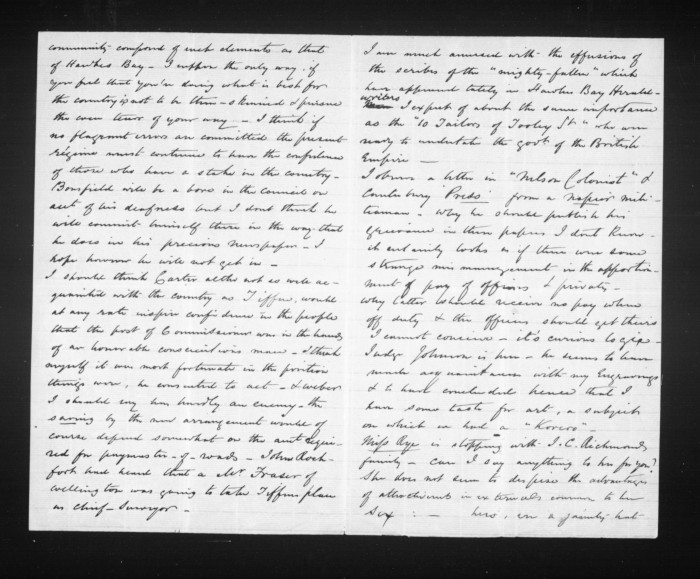 community composed of such elements as that
of Hawkes Bay - I suppose the only way if
you feel that you're doing what is best for
the country is not to be thin-skinned & pursue
the even tenor of your way - I think if
no flagrant errors are committed the present
régime must continue to have the confidence
of those who have a stake in the country -
Bousfield will be a bore in the council on
acct of his deafness but I dont think he
will commit himself there in the way that
he does in his precious newspaper - I
hope however he will not get in -
I should think Carter altho not so well ac-
quainted with the country as Tiffen, would
at any rate inspire confidence in the people
that the post of Commissioner was in the hands
of an honorable conscientious man - I think
myself it was most fortunate in the position
things were, he consented to act - & Weber
I should say has hardly an enemy - the
saving by the new arrangement would of
course depend somewhat on the amt requi-
red for Engineer-of-roads - John Roch-
fort had heard that a Mr Fraser of
Wellington was going to take Tiffens place
as chief-Surveyor -
I am much amused with the effusions of
the scribes of the "mighty-fallen" which
have appeared lately in Hawkes Bay Herald -
writers I expect of about the same importance
as the "10 Tailors of Tooley St" who were
ready to undertake the govt of the British
Empire -
I observe a letter in "Nelson Colonist" &
Canterbury "Press" from a Napier mili-
tiaman - Why he should publish his
grievance in these papers I dont know -
it certainly looks as if there were some
strange mismanagement in the apportion-
ment of pay of officers & privates -
Why latter should receive no pay when
off duty & the officers should get theirs
I cannot conceive - it's curious to [me] -
Judge Johnson is here - he seems to have
made acquaintance with my Engravings
& to have concluded hence that I
have some taste for art, a subject
on which we had a "Korero" -
Miss Rye is stopping with J. C. Richmonds
family - can I say anything to her for you?
She does not seem to despise the advantages
of attractiveness in externals common to her
sex : - hers, even a jaunty hat